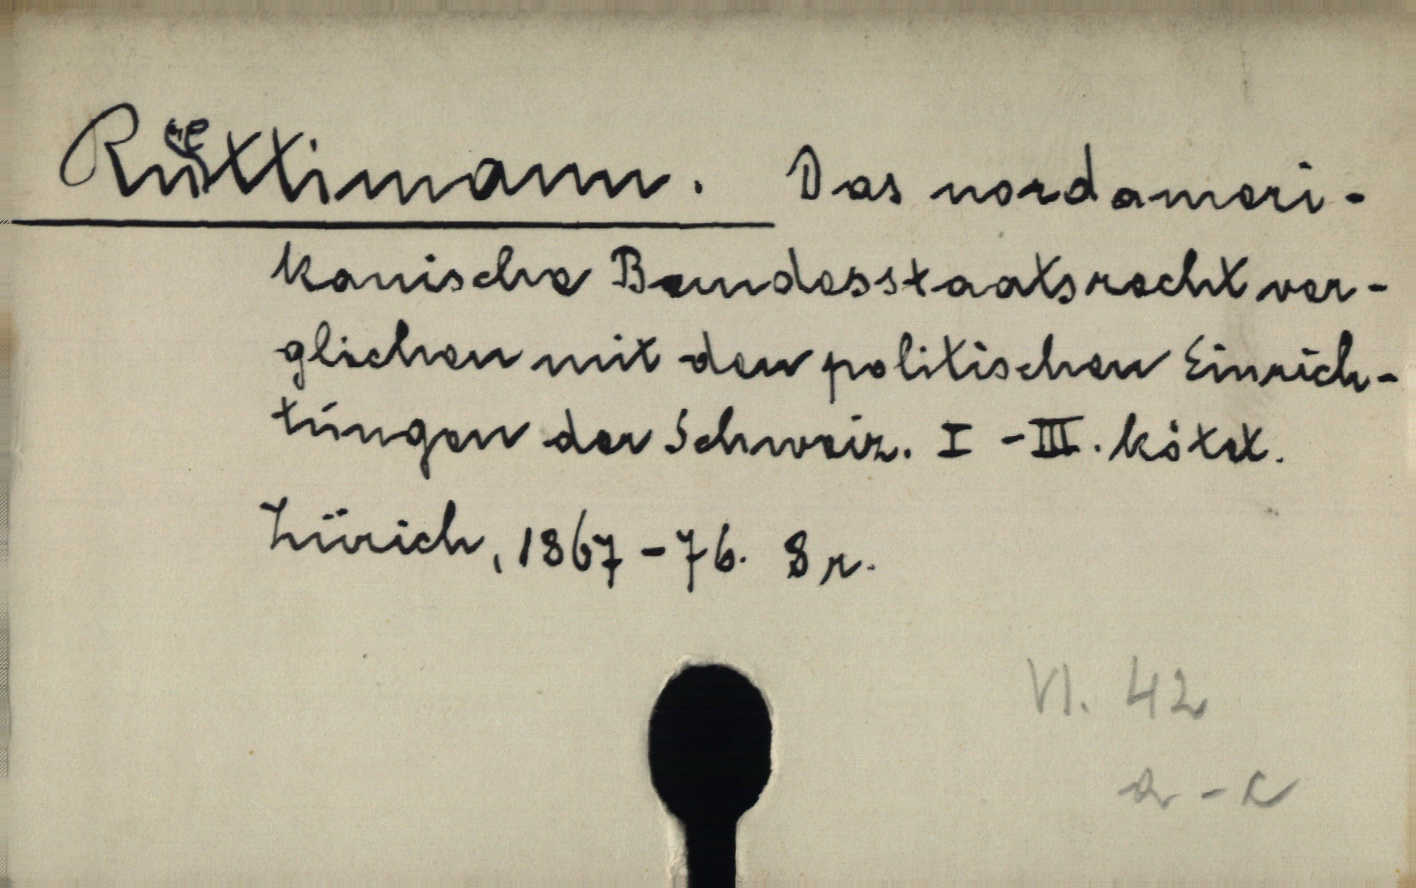 Rüttimann. Das nordameri-
kanische Bundesstaatsrecht ver-
glichen mit den politischen Einrich-
tungen der Schweiz. I - III. kötet.
Zürich, 1867-76. 8 r.
VI. 42
a - c